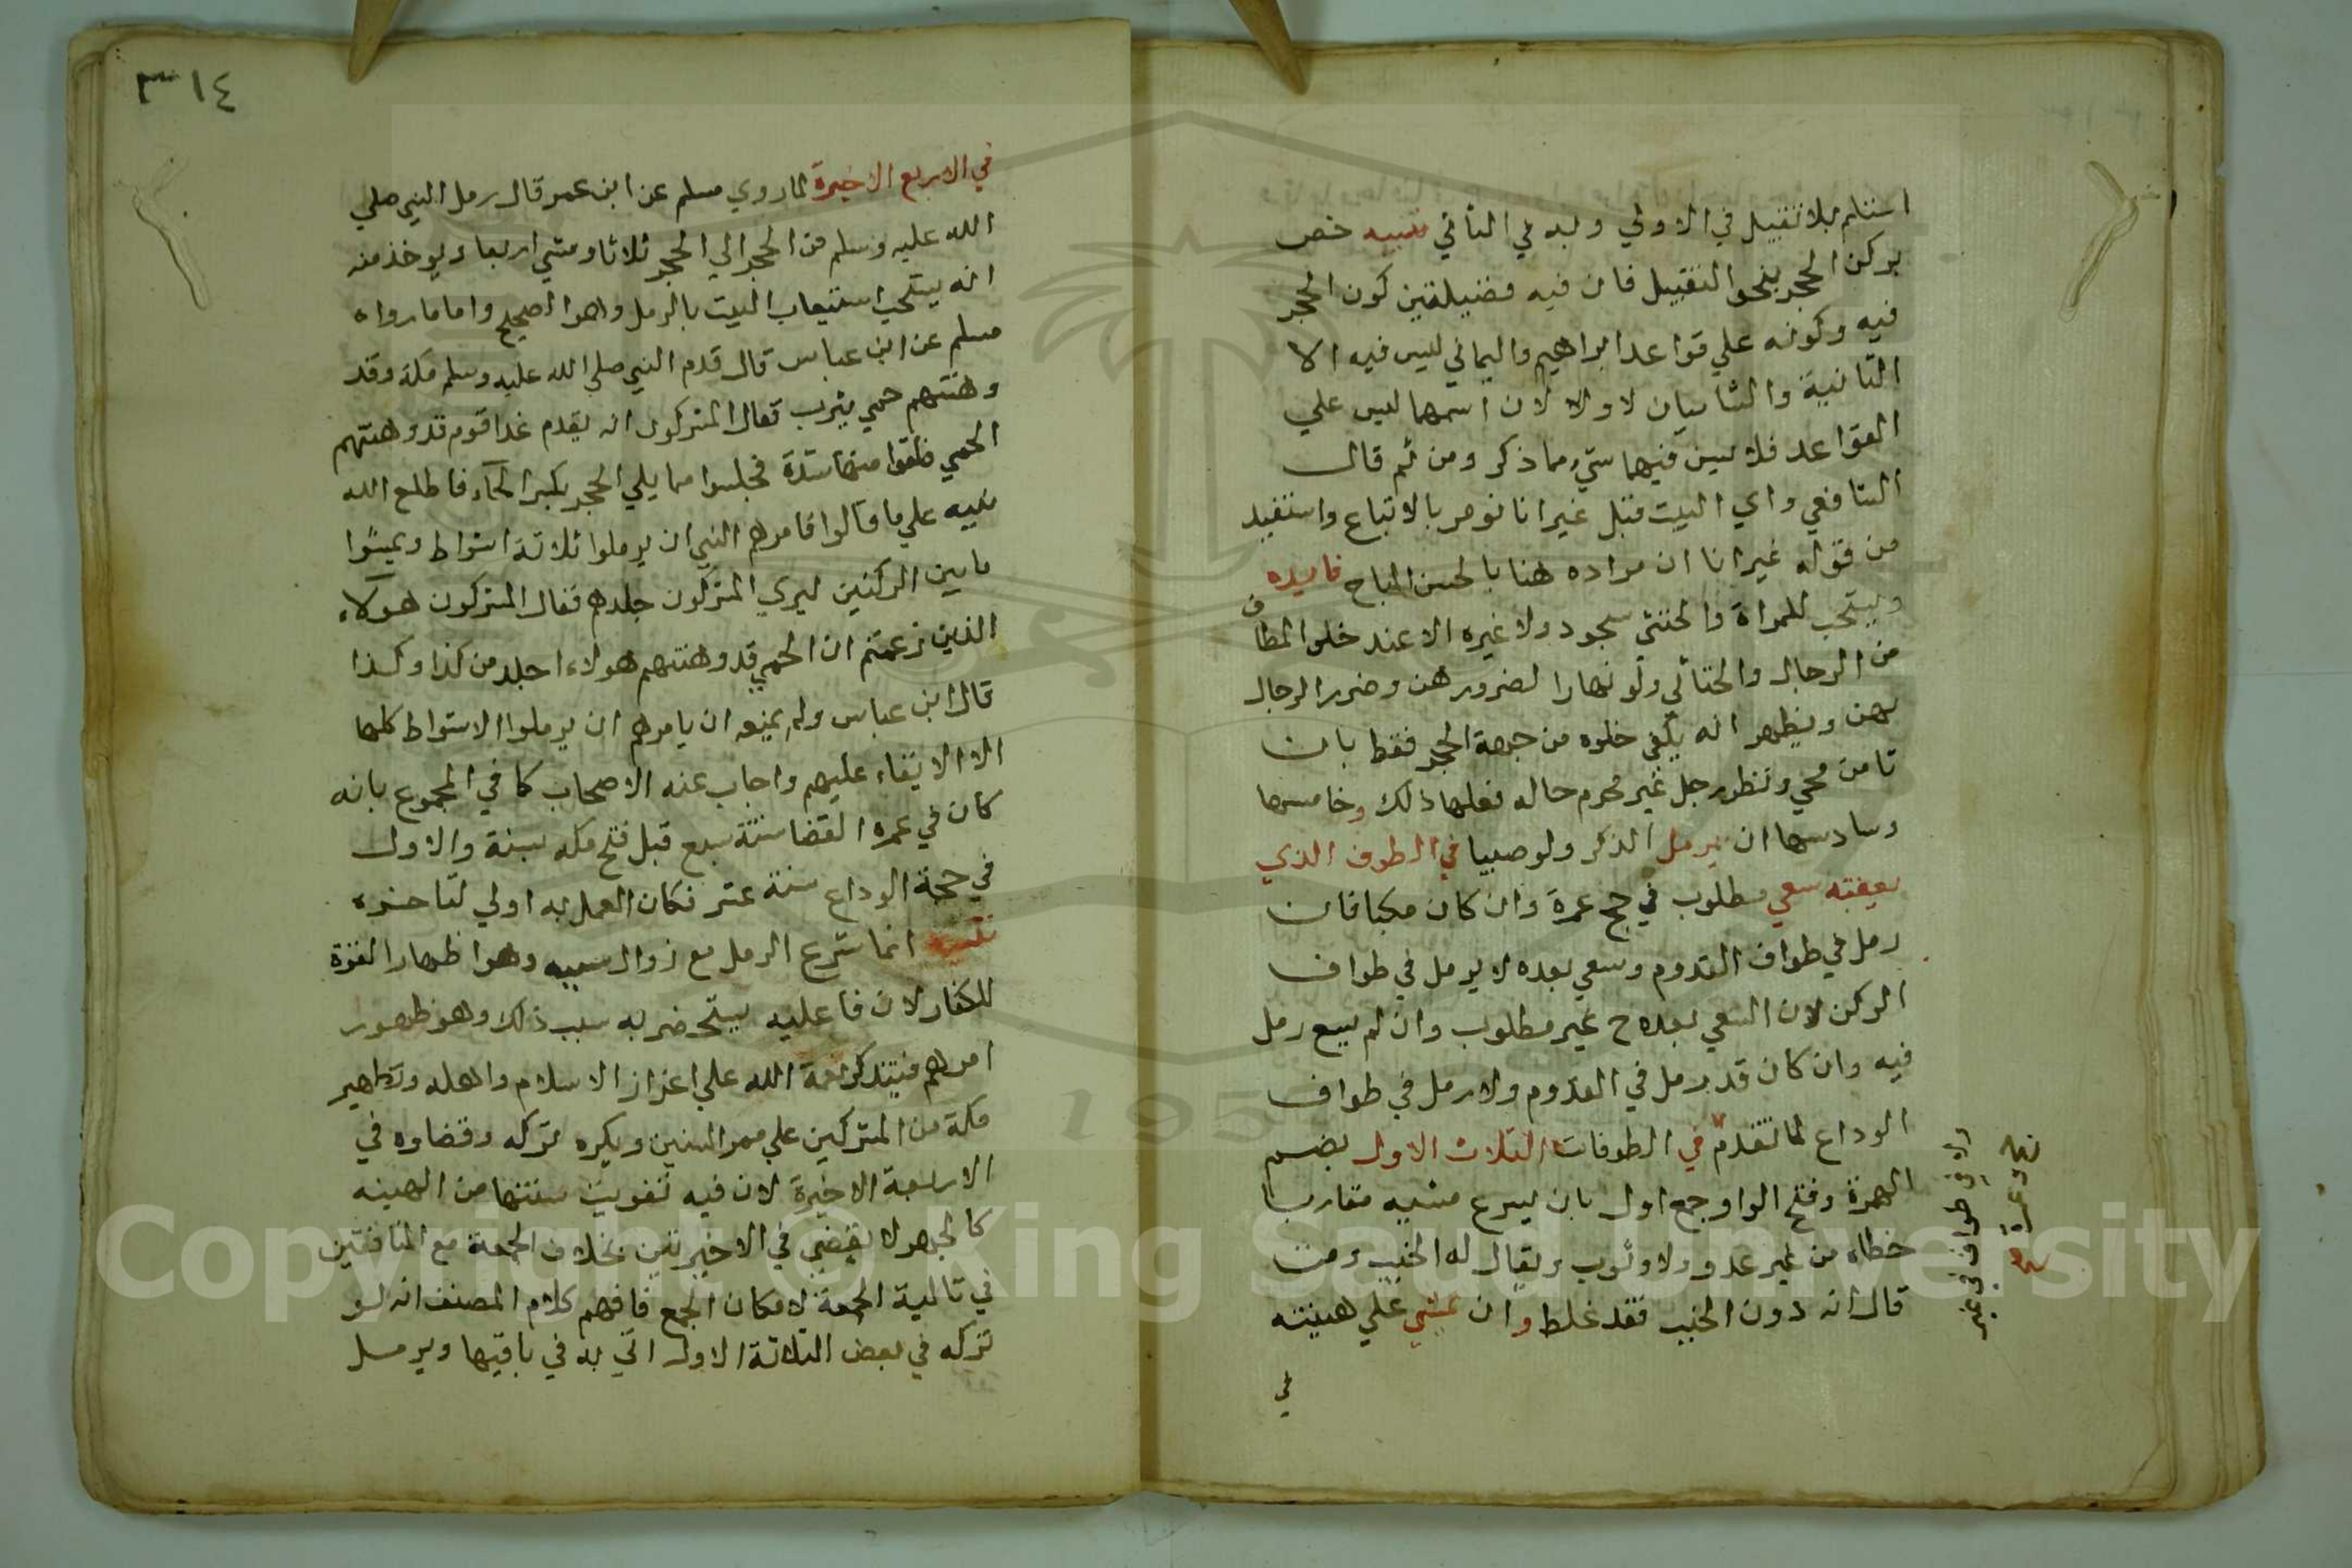 استلم بلا تقبيل في الاولي وبه في الثاني تنبيه خص
بركن الحجر بنحو التقبيل فان فيه فضيلتين كون الحجر
فيه وكونه علي قواعد ابراهيم واليماني ليس فيه الا
الثانية والشاميان لا ولا لان اسهما ليس علي
القواعد فلا يسن فيهما شيء مما ذكر ومن ثم قال
الشافعي واي البيت قبل غير انا نومر بالاتباع واستفيد
من قوله غير انا ان مراده هنا بالحسن المباح فايده
ويستحب للمراة والخنثي سجود ولا غيره الا عند خلو المطاف
من الرجال والخناثي ولو نهارا لضررهن وضرر الرجال
بهن ويظهر انه يكفي خلوه من جهة الحجر فقط بان
تامن مجي ونظر رجل غير محرم حاله فعلها ذلك وخامسها
وسادسها ان يرمل الذكر ولو صبيا في الطوف الذي
يعقبه سعي مطلوب في حج عمرة وان كان مكيا فان
رمل في طواف القدوم وسعي بعده لا يرمل في طواف
الركن لان السعي بعده ح غير مطلوب وان لم يسع رمل
فيه وان كان قد رمل في القدوم ولا رمل في طواف
الوداع لما تقدم في الطوفات الثلاث الاول بضم
الهمزة وفتح الواو جمع اول بان يسرع مشيه مقاربا
خطاه من غير عدو ولا وثوب ويقال له الخبب ومن
قال انه دون الخبب فقد غلط وان يمشي علي هينته
في
٣١٤
في الاربع الاخيرة لما روي مسلم عن ابن عمر قال رمل النبي صلي
الله عليه وسلم من الحجر الي الحجر ثلاثا ومشي اربعا ويوخذ منه
انه يستحب استيعاب البيت بالرمل وهو الصحيح واما ما رواه
مسلم عن ابن عباس قال قدم النبي صلي الله عليه وسلم مكة وقد
وهنتهم حمي يثرب فقال المشركون انه يقدم غدا قوم قد وهنتهم
الحمي فلقوا منها شدة فجلسوا مما يلي الحجر بكسر الحآء فاطلع الله
نبيه علي ما قالوا فامرهم النبي ان يرملوا ثلاثة اشواط ويمشوا
ما بين الركنين ليري المشركون جلدهم فقال المشركون هولآء
الذين زعمتم ان الحمي قد وهنتهم هولاء اجلد من كذا وكذا
قال ابن عباس ولم يمنعه ان يامرهم ان يرملوا الاشواط كلها
الا الابقاء عليهم واجاب عنه الاصحاب كما في المجموع بانه
كان في عمرة القضا سنة سبع قبل فتح مكه بسنة والاول
في حجة الوداع سنة عشر فكان العمل به اولي لتاخره
تنبيه انما شرع الرمل مع زوال سببه وهو اظهار القوة
للكفار لان فاعليه يستحضر به سبب ذلك وهو ظهور
امرهم فيتذكر نعمة الله علي اعزاز الاسلام واهله وتطهير
مكة من المشركين علي ممر السنين ويكره تركه وقضاوه في
الاربعة الاخيرة لان فيه تفويت سنتها من الهينه
كالجهر لا يقضي في الاخيرتين بخلاف الجمعة مع المنافقين
في تالية الجمعة لامكان الجمع فافهم كلام المصنف انه لو
تركه في بعض الثلاثة الاول اتي به في باقيها ويرمل